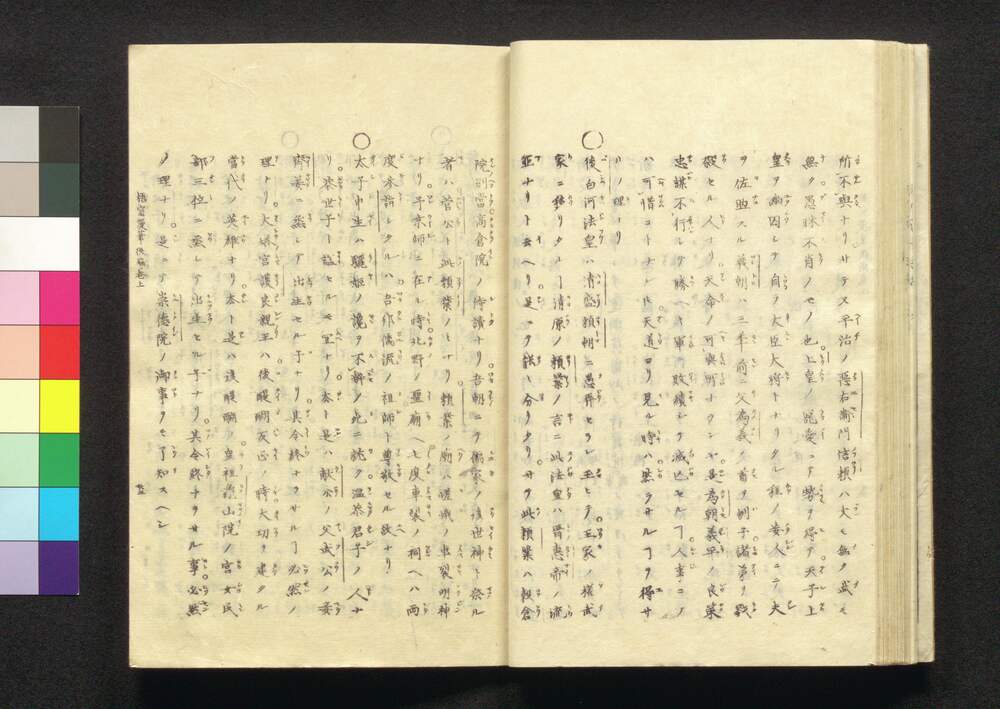 所不與ナリサテ又平治ノ惡右衛門信頼ハ大モ無ク武モ
無ク愚昧不肖ノモノ也上皇ノ寵愛ニテ勢ヲ得テ天子上
皇ヲ幽囚シテ自ラ大臣大將トナリタレ程ノ妄人ニテ夫
ヲ佐助スル義朝ハ三年前ニ父為義ノ首ヲ刎子諸弟ヲ戮
殺セル人ナリ天命ノ可與所ナランヤ是為朝義平ノ良策
忠謀不行シテ勝ヘキ軍ノ敗績シテ滅亡セル丁人事ニノ
ハ可惜コトナレ𪜈天道ヨリ見ル時ハ然ラサル丁ヲ得サ
ルノ理ナリ
〇後白河法皇ハ清盛頼朝ニ愚弄セラレ玉ヒテ王家ノ權武
家ニ移リタレ丁清原ノ頼業ノ言ニ此法皇ハ晋惠帝ノ流
亞ナリト云ヘリ是ニテ能ク分リタリサテ此頼業ハ穀倉
院別當高倉院ノ侍讀ナリ吾朝ニテ儒家ノ後世神ト祭ル
者ハ菅公ト此頼業ノミナリ頼業ノ廟ハ嵯峨ノ車裂明神
ナリ予京師ニ在シ時北野ノ聖廟ヘ七度車裂ノ祠ヘハ両
度参詣シタルハ吾作儒流ノ祖師ト尊敬セル故ナリ
〇太子申生ハ驪姫ノ讒ヲ不辨ノ死ニ就ク温恭君子ノ人ナ
リ恭世子ト謚セルモ宜ナリ然ト是ハ献公ノ父武公ノ妾
齊姜ニ烝シテ出生セル子ナリ其令終ナラサル丁必然ノ
理ナリ大塔宮護良親王ハ後醍醐反正ノ時大功ヲ建タル
當代ノ英雄ナリ然ト是ハ後醍醐ノ皇祖龜山院ノ宮女民
部三位ニ烝シテ出生セル子ナリ其令終ナラサル事必然
ノ理ナリ是ニテ崇徳院ノ御事ヲモ了知スヘシ